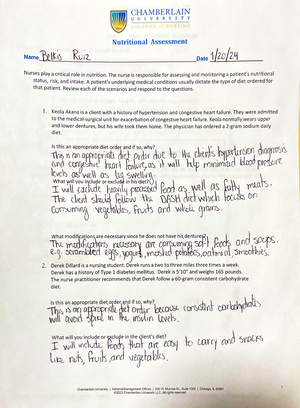 CHAMBERLAIN
UNIVERSITY
COLLEGE OF NURSING
Nutritional Assessment
Name Belkis Ruiz Date 1/20/24
Nurses play a critical role in nutrition. The nurse is responsible for assessing and monitoring a patient's nutritional
status, risk, and intake. A patient's underlying medical conditions usually dictate the type of diet ordered for
that patient. Review each of the scenarios and respond to the questions.
1. Keola Akana is a client with a history of hypertension and congestive heart failure. They were admitted
to the medical-surgical unit for exacerbation of congestive heart failure. Keola normally wears upper
and lower dentures, but his wife took them home. The physician has ordered a 2-gram sodium daily
diet.
Is this an appropriate diet order and if so, why?
This is an appropriate diet order due to the client's hypertension diagnosis
and congestive heart failure, as it will help minimized blood pressure
levels as well as leg swelling.
What will you include or exclude in his diet?
I will exclude heavily processed food as well as fatty meats.
The client should follow the DASH diet which focus on
consuming vegetables, fruits and whole grains.
What modifications are necessary since he does not have his dentures?
The modifications necessary are consuming soft foods and soups.
e.g. scrambled eggs, yogurt, mashed potatoes, oatmeal, smoothies.
2. Derek Dillard is a nursing student. Derek runs two to three miles three times a week.
Derek has a history of Type 1 diabetes mellitus. Derek is 5'10" and weighs 165 pounds.
The nurse practitioner recommends that Derek follow a 60-gram consistent carbohydrate
diet.
Is this an appropriate diet order and if so, why?
This is an appropriate diet order because consistent carbohydrates
will avoid spike in the insulin levels.
What will you include or exclude in the client's diet?
I will include foods that are easy to carry and snacks
like nuts, fruits and vegetables.
Chamberlain University | National Management Offices | 500 W. Monroe St., Suite 1300 | Chicago, IL 60661